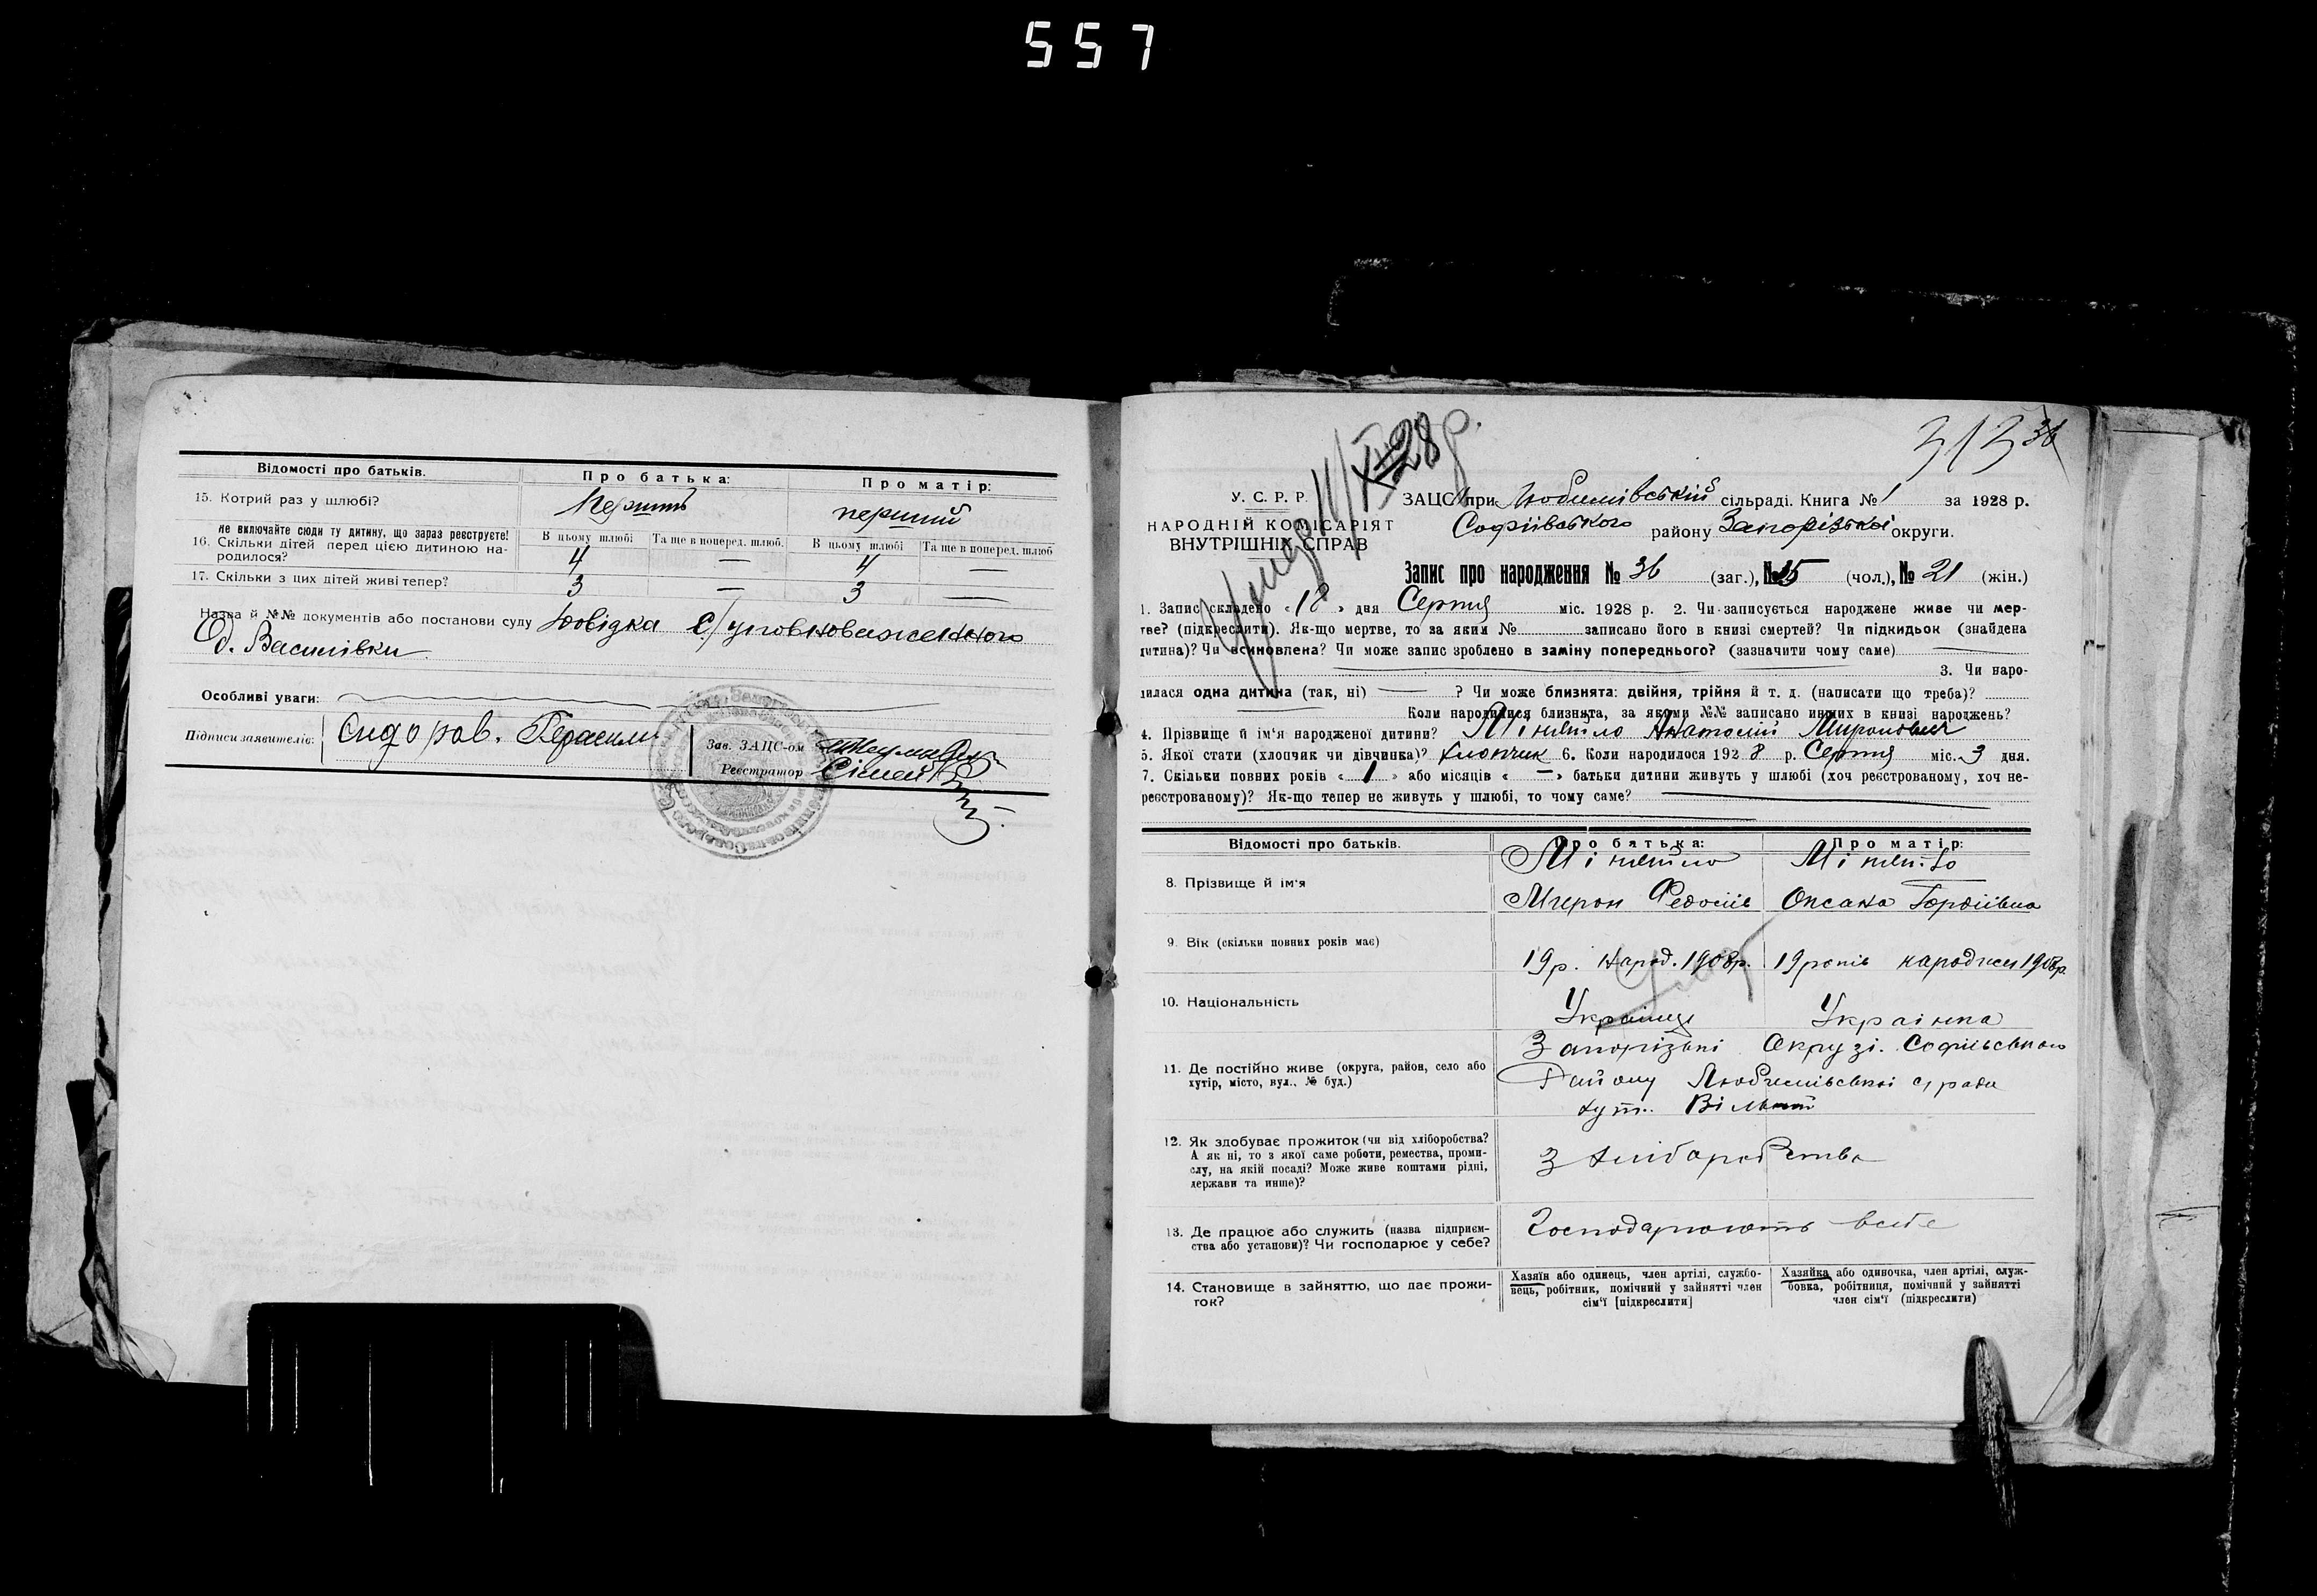 557
Відомості про батьків.
Про батька:
Про матір:
15. Котрий раз у шлюбі?
перший
Не включайте сюди ту дитину, що зараз реєструєте!
16. Скільки дітей перед цією дитиною народилося?
В цьому шлюбі
Та ще в поперед. шлюб.
В цьому шлюбі
Та ще в поперед. шлюб
4 — 4 —
17. Скільки з цих дітей живі тепер?
3 — 3 —
Назва й №№ документів або постанови суду Довідка С/уповноваженного
с. Василівки
Особливі уваги:
Підписи заявителів:
Сидоров. Герасим
Зав. ЗАЦС-ом
Реєстратор
313 36
Умер 11/XII 28 р.
У. С. Р. Р.
НАРОДНІЙ КОМІСАРІЯТ
ВНУТРІШНІХ СПРАВ
ЗАЦС при Любимівській сільраді. Книга № 1 за 1928 р.
Софіівського району Запорізькоі округи.
Запис про народження № 36 (заг.), № 15 (чол.), № 21 (жін.)
1. Запис складено «18» дня Серпня міс. 1928 р. 2. Чи записується народжене живе чи мер-
тве? (підкреслити). Як-що мертве, то за яким № записано його в книзі смертей? Чи підкидьок (знайдена
дитина)? Чи всиновлена? Чи може запис зроблено в заміну попереднього? (зазначити чому саме)
3. Чи наро-
дилася одна дитина (так, ні) — ? Чи може близнята: двійня, трійня й т. д. (написати що треба)?
Коли народилися близнята, за якими №№ записано инших в книзі народжень?
4. Прізвище й ім'я народженої дитини? Анатолій Миронович
5. Якої стати (хлопчик чи дівчинка)? хлопчик 6. Коли народилося 1928 р. Серпня міс. 3 дня.
7. Скільки повних років «1» або місяців «—» батьки дитини живуть у шлюбі (хоч реєстрованому, хоч не-
реєстрованому)? Як-що тепер не живуть у шлюбі, то чому саме?
Відомості про батьків.
Про батька:
Про матір:
8. Прізвище й ім'я
Мирон Федосіів
Оксана Гордіівна
9. Вік (скільки повних років має)
19 р. народ. 1908 р.
19 років народжен 1908 р.
10. Національність
Украінець
Украінка
11. Де постійно живе (округа, район, село або
хутір, місто, вул., № буд.)
Запорізькі Окрузі. Софіівського
Району Любимівськоі с/ради
хут. Вільний
12. Як здобуває прожиток (чи від хліборобства?
А як ні, то з якої саме роботи, ремества, проми-
слу, на якій посаді? Може живе коштами рідні,
держави та инше)?
З хліборобства
13. Де працює або служить (назва підприєм-
ства або установи)? Чи господарює у себе?
Господарюють в себе
14. Становище в зайняттю, що дає прожи-
ток?
Хазяїн або одинець, член артілі, службо-
вець, робітник, помічний у зайнятті член
сім'ї [підкреслити]
Хазяйка або одиночка, член артілі, служ-
бовка, робітниця, помічний у зайнятті
член сім'ї (підкреслити)